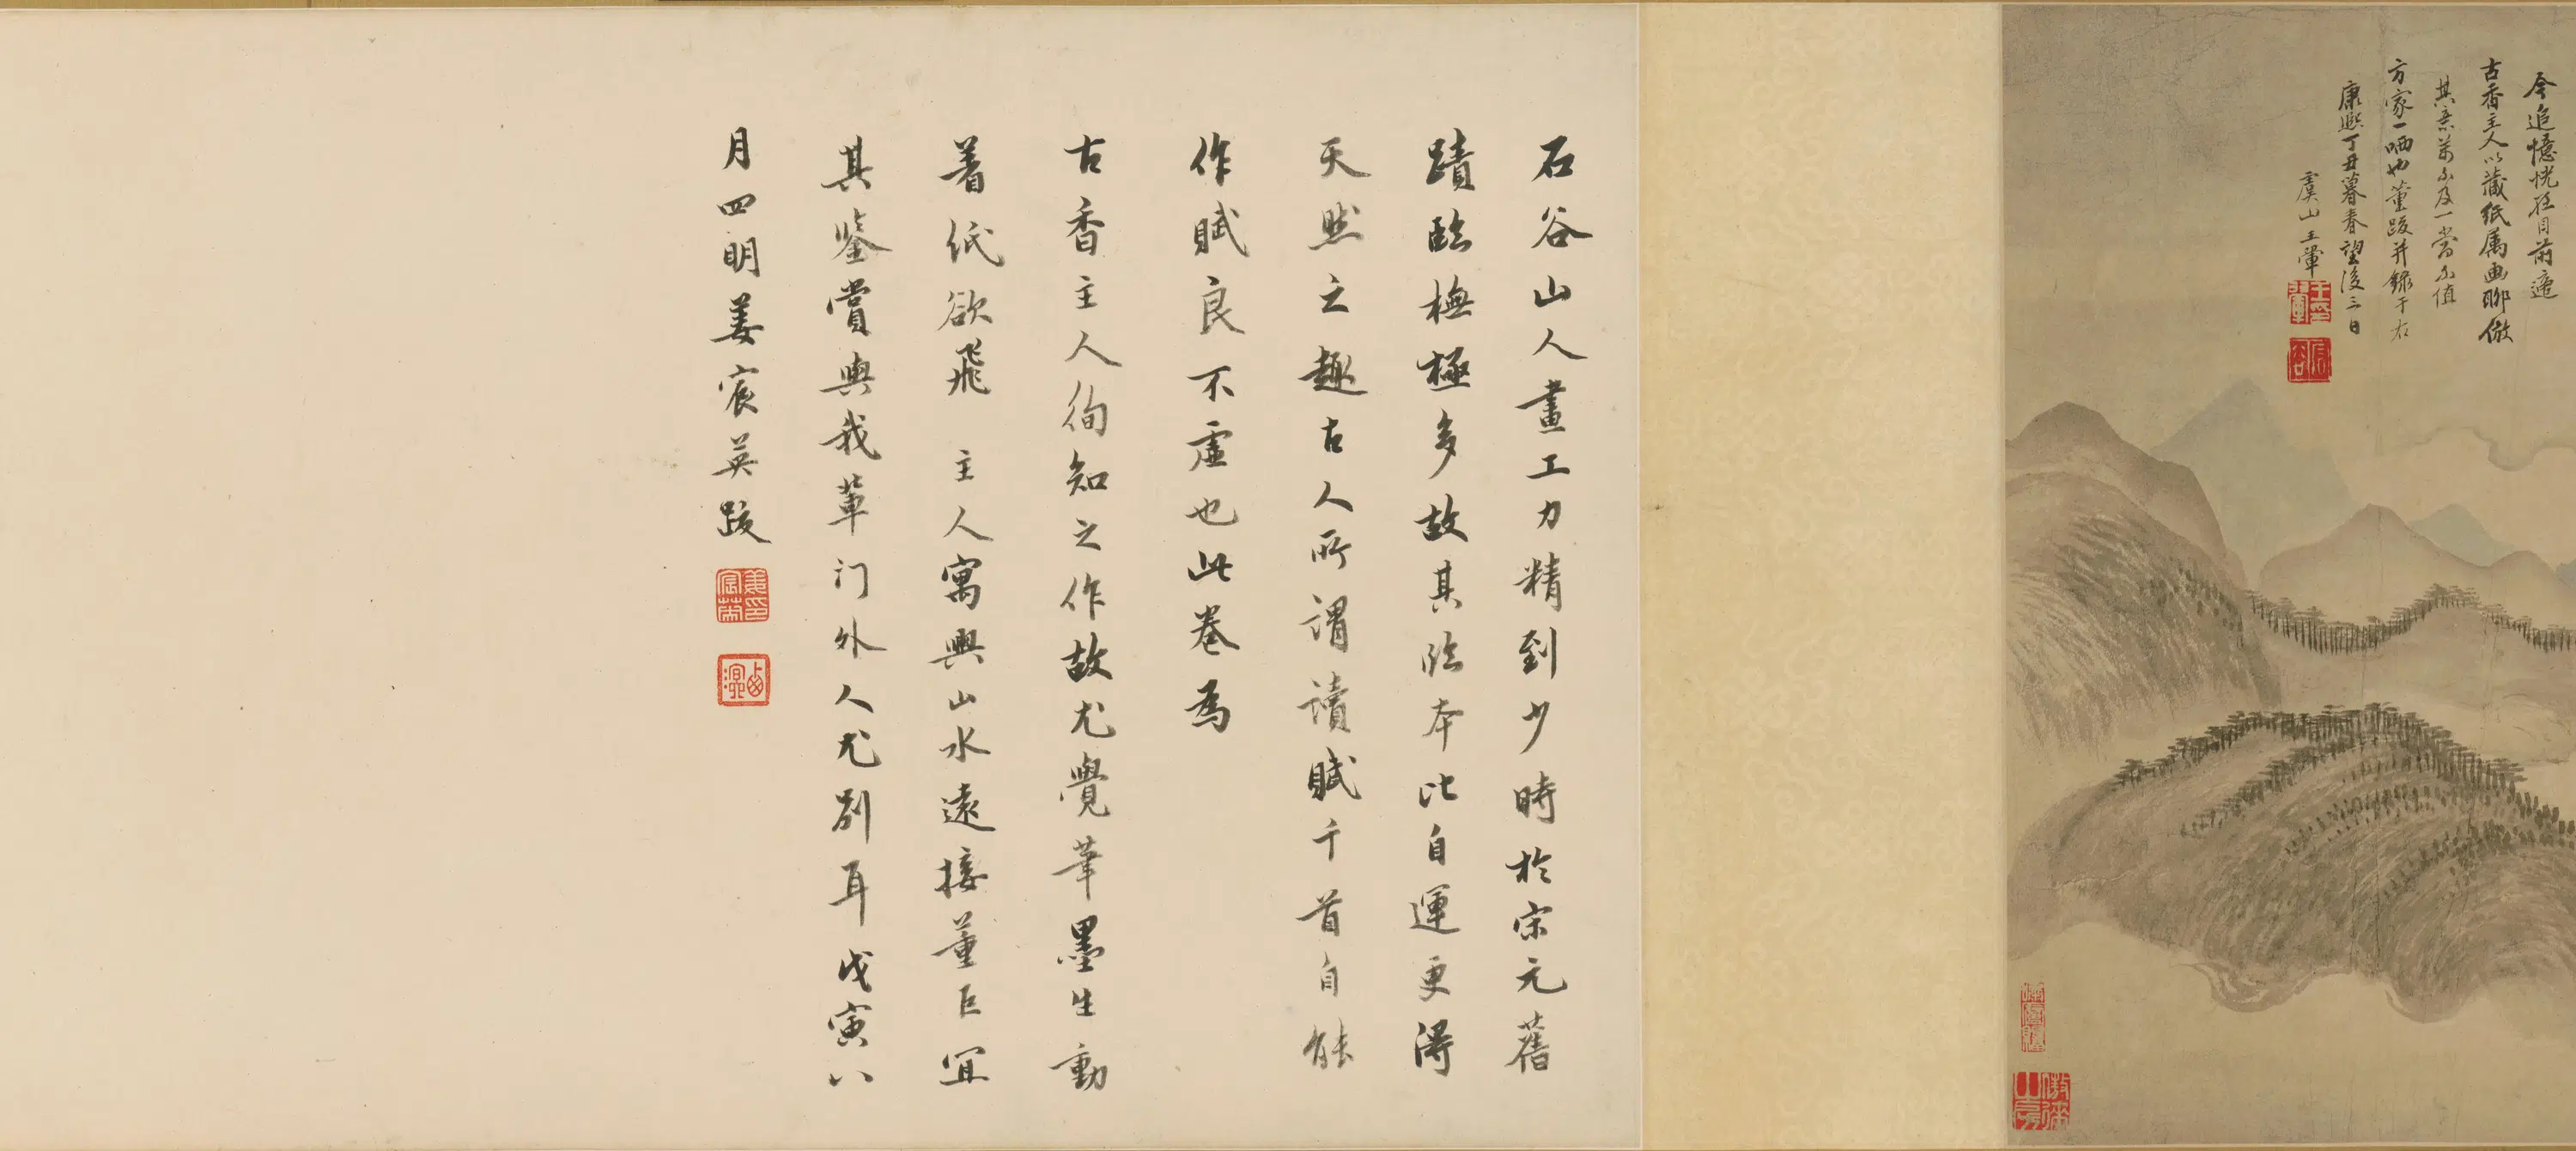 今追憶恍在目前適
古香主人以藏紙属画聊倣
其意万不及一當不值
方家一哂也董跋并錄于右
康熙丁丑暮春望後三日
虞山王翬
石谷山人畫工力精到少時於宋元舊
蹟臨橅極多故其臨本比自運更得
天然之趣古人所謂讀賦千首自能
作賦良不虛也此卷爲
古香主人徇知之作故尤覺筆墨生動
着紙欲飛 主人寓興山水遠接董巨宜
其鑒賞與我輩门外人尤別耳戊寅八
月四明姜宸英跋